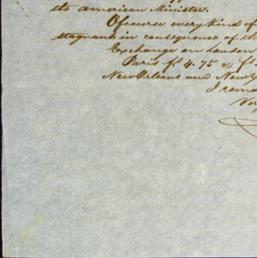 the american Minister.
Of course every kind of
stagnant in consequence of th
Exchange on London
Paris f 4.75 @ f
New Orleans and New Y
I rema
Ver